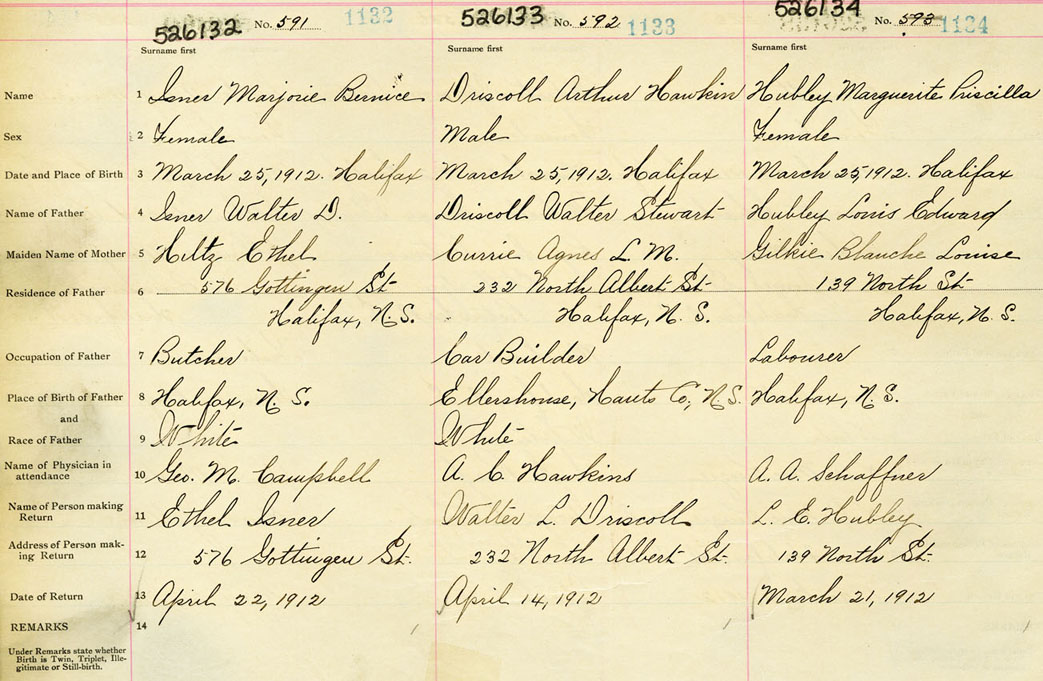 526132 No. 591 1132 526133 No. 592 1133 526134 No. 593 1134
Surname first Surname first Surname first
Name 1 Isner Marjorie Bernice Driscoll Arthur Hawkin Hubley Marguerite Priscilla
Sex 2 Female Male Female
Date and Place of Birth 3 March 25, 1912. Halifax March 25, 1912. Halifax March 25, 1912. Halifax
Name of Father 4 Isner Walter D. Driscoll Walter Stewart Hubley Louis Edward
Maiden Name of Mother 5 Hiltz Ethel Currie Agnes L. M. Gilkie Blanche Louise
Residence of Father 6 576 Gottingen St 232 North Albert St 139 North St
Halifax, N. S. Halifax, N. S. Halifax, N. S.
Occupation of Father 7 Butcher Car Builder Labourer
Place of Birth of Father 8 Halifax, N. S. Ellershouse, Hants Co, N. S. Halifax, N. S.
and
Race of Father 9 White White
Name of Physician in attendance 10 Geo. M. Campbell A. C. Hawkins A. A. Schaffner
Name of Person making Return 11 Ethel Isner Walter L. Driscoll L. E. Hubley
Address of Person mak-ing Return 12 576 Gottingen St. 232 North Albert St. 139 North St.
Date of Return 13 April 22, 1912 April 14, 1912 March 21, 1912
REMARKS 14
Under Remarks state whether
Birth is Twin, Triplet, Ille-
gitimate or Still-birth.